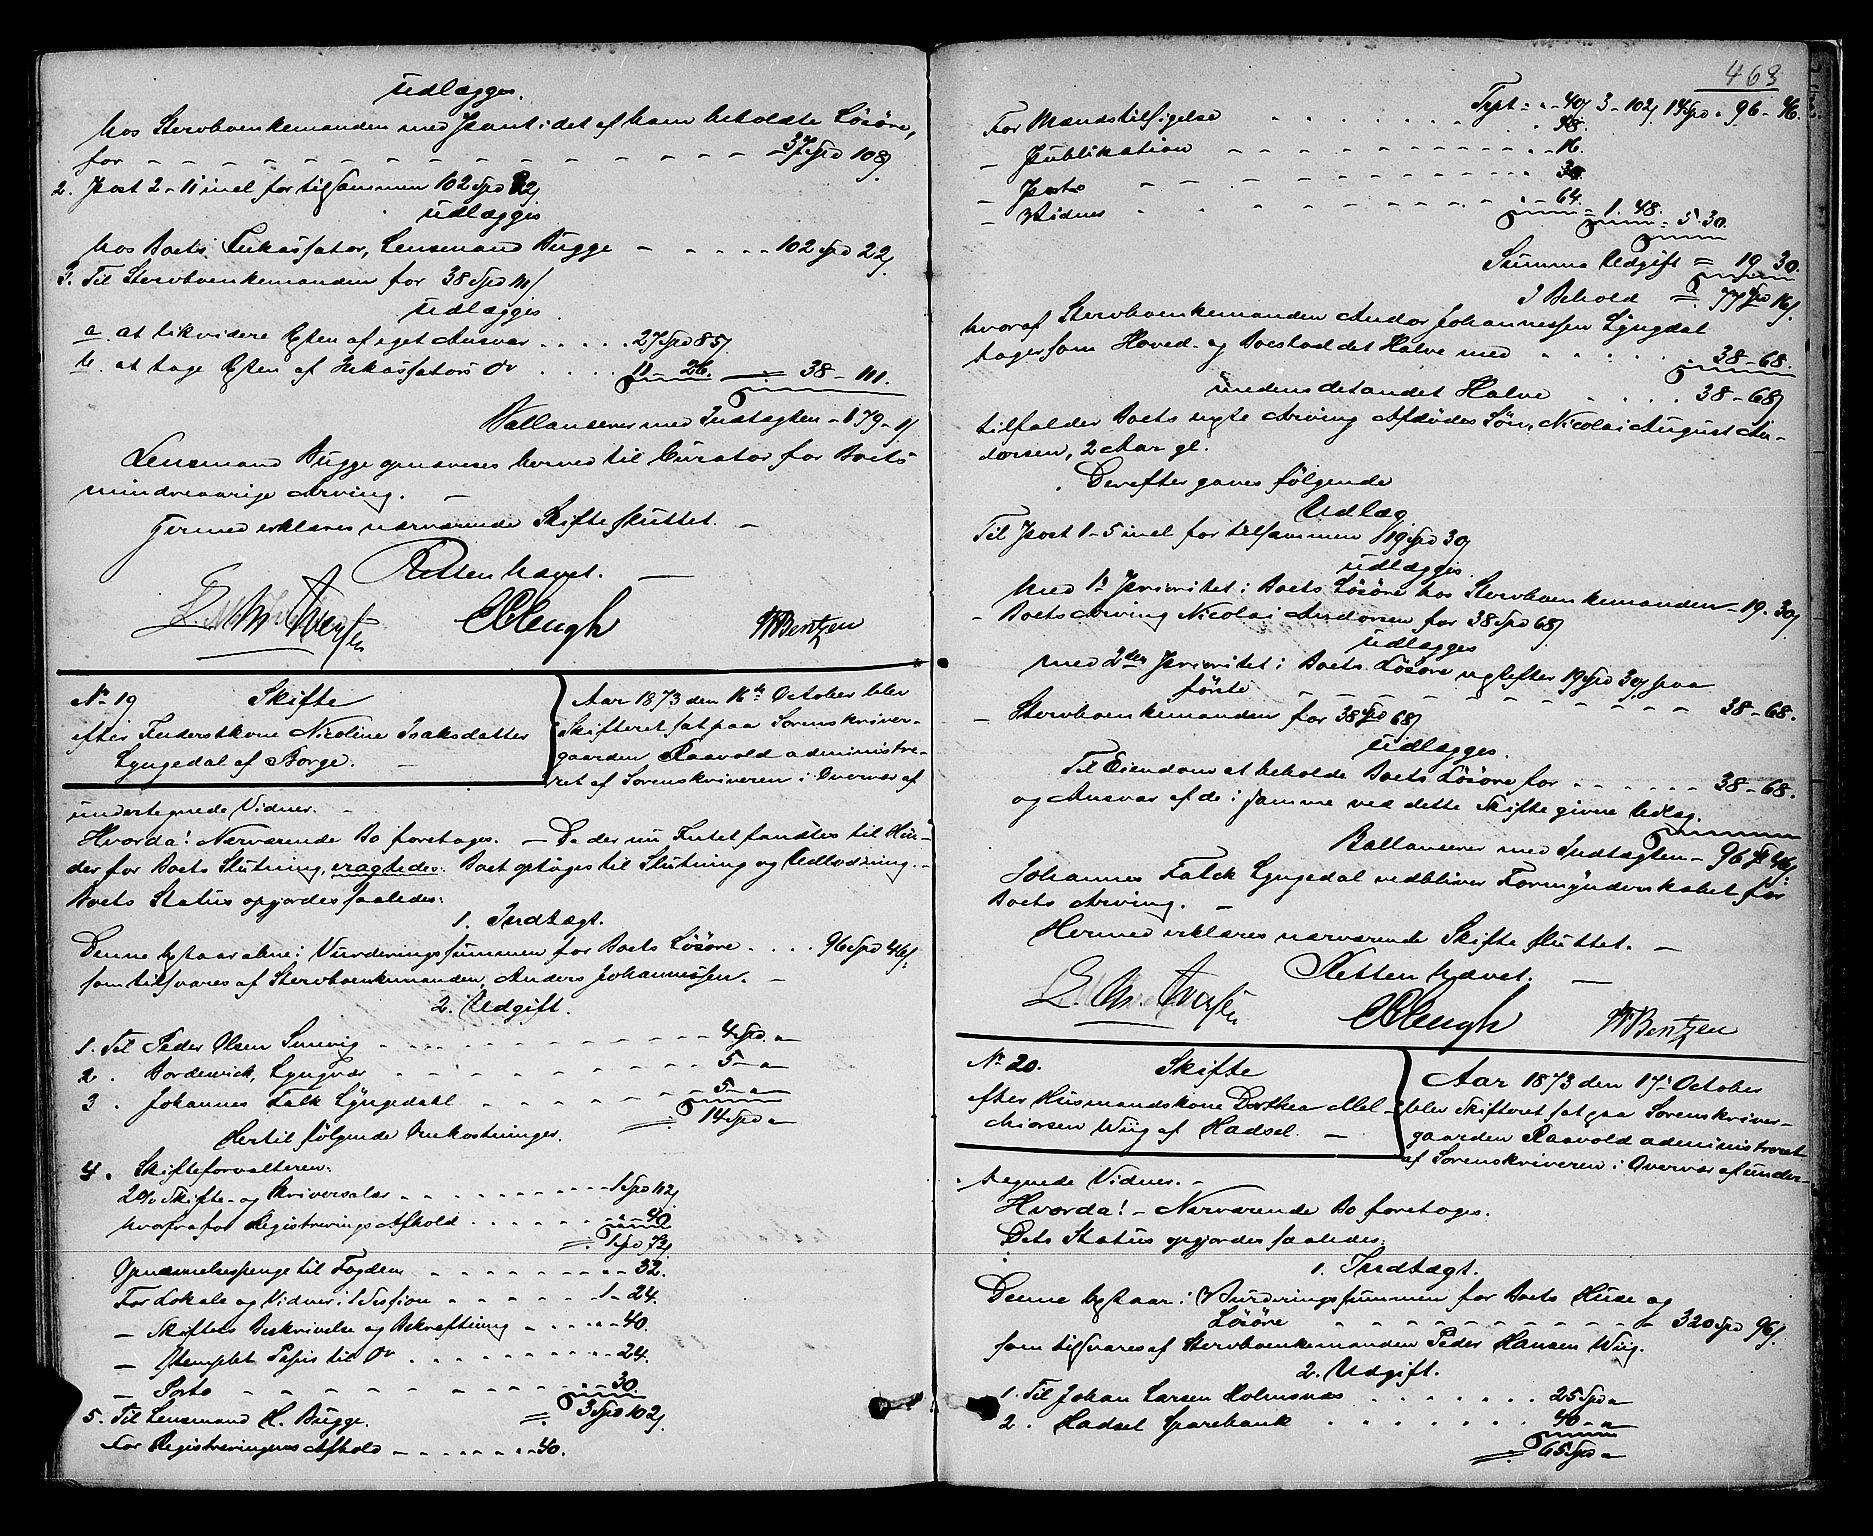 udlægges.
hos Stervboenkemanden med Pant i det af ham beholdte Lösöre,
for - - - 37 Spd 108ʃ
2. Post 2-11 incl for tilsammen 102 Spd 22ʃ
udlægges
hos Boets Inkassator, Lensmand Bugge - - - 102 Spd 22ʃ
3. Til Stervboenkemanden for 38 Spd 111ʃ
udlægges
a. at likvidere Resten af eget Ansvar . . . . . 27 Spd 85ʃ
b. at tage Resten af Inkassators Do . . . . 11 26. — 38 - 111.
Ballancerer med Indtægten - 179 - 1ʃ
Lensmand Bugge opnævnes herved til Curator for Boets
mindreaarige Arving. —
Hermed erklæres nærværende Skifte sluttet. —
Retten hævet. —
CClengh
W Bentzen
No 19 Skifte
efter Inderstkone Nicoline Isaksdatter
Lyngedal af Borge. —
Aar 1873 den 16de October blev
Skifteret sat paa Sorenskriver-
gaarden Raavold administre-
ret af Sorenskriveren i Overvær af
undertegnede Vidner. —
Hvorda! Nærværende Bo foretoges. — Da der nu Intet fandtes til Hin-
der for Boets Slutning, eragtedes: Boet optages til Slutning og Udlodning. —
Boets Status opgjordes saaledes:
1. Indtægt.
Denne bestaar alene i Vurderingssummen for Boets Lösöre . . . . 96 Spd 46ʃ
som tilsvares af Stervboenkemanden, Anders Johannessen. —
2. Udgift.
1. Til Peder Olsen Sunvig - - - 4 Spd. "
2. Borderwick, Lyngvær . . . 5 - "
3. Johannes Falk Lyngedahl - - - 5 - "
= 14 Spd "
Hertil fölgende Omkostninger.
4. Skifteforvalteren:
2 % Skifte- og Skriversalær - - - 1 Spd 112ʃ
hvorfra for Registrerings Afhold . . . 40
= 1 Spd 72ʃ
Opnævnelsespenge til Fogden . . . 32.
For Lokale og Vidner i 1 Session . . . 1 - 24.
— Skiftets Beskrivelse og Bekræftning - . . . 40.
— Stemplet Papir til Do . . . 24.
— Porto - - - 30.
= 3 Spd 102ʃ
5. Til Lensmand H. Bugge.
For Registreringens Afhold - - - 40.
463
Tspt = " - 40ʃ 3 - 102ʃ 14 Spd " 96 - 46.
For Mandstilsigelse . . . 48.
— Publikation - - - 16.
— Porto - - -
— Vidner . . . 64.
= 1. 48. = 5. 30.
Summa Udgift = 19 30.
I Behold = 77 Spd 16ʃ
hvoraf Stervboenkemanden Andor Johannessen Lyngdal
tager som Hoved- og Boeslod det Halve med . . . 38 - 68.
medens det andet Halve . . . . 38 - 68ʃ
tilfalder Boets ægte Arving Afdödes Sön, Nicolai August An-
dorsen, 2 Aar gl.
Derefter gaves fölgende
Udlæg
Til Post 1-5 incl for tilsammen 19 Spd 30ʃ
udlægges
med 1st Prioritet i Boets Lösöre hos Stervboenkemanden - 19. 30ʃ
- Boets Arving Nicolai Andorsen for 38 Spd 68ʃ
udlægges
med 2den Prioritet i Boets Lösöre næstefter 19 Spd 30ʃ paa
förste - - - 38 - 68.
- Stervboenkemanden for 38 Spd 68ʃ
udlægges.
Til Eiendom at beholde Boets Lösöre for - - - 38 - 68.
og Ansvar af de i samme ved dette Skifte givne Udlæg.
Ballancerer med Indtægten - 96 Spd 46ʃ
Johannes Falck Lyngedal vedbliver Formynderskabet for
Boets Arving. —
Hermed erklæres nærværende Skifte sluttet. —
Retten hævet. —
CClengh
W Bentzen
No 20. Skifte
efter Husmandskone Dorthea Mel-
chiorsen Wiig af Hadsel. —
Aar 1873 den 17de October
blev Skifteret sat paa Sorenskriver-
gaarden Raavold administreret
af Sorenskriveren i Overvær af under-
tegnede Vidner. —
Hvorda! — Nærværende Bo foretoges.
Dets Status opgjordes saaledes:
1. Indtægt.
Denne bestaar i Vurderingssummen for Boets Huse og
Lösöre - - - 320 Spd 96ʃ
som tilsvares af Stervboenkemanden Peder Hansen Wiig.
2. Udgift.
1. Til Johan Larsen Holmsnæs . . . 25 Spd "
2. Hadsel Sparebank . . . 40 - "
= 65 Spd "